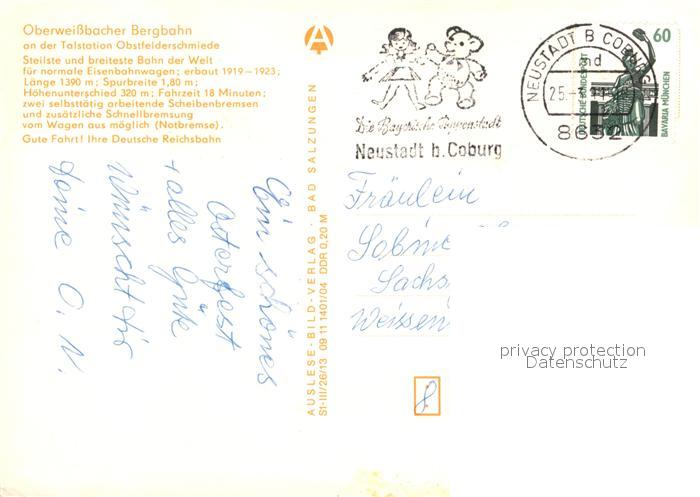 Oberweißbacher Bergbahn
an der Talstation Obstfelderschmiede
Steilste und breiteste Bahn der Welt
für normale Eisenbahnwagen; erbaut 1919–1923;
Länge 1390 m; Spurbreite 1,80 m;
Höhenunterschied 320 m; Fahrzeit 18 Minuten;
zwei selbsttätig arbeitende Scheibenbremsen
und zusätzliche Schnellbremsung
vom Wagen aus möglich (Notbremse).
Gute Fahrt! Ihre Deutsche Reichsbahn
Ein schönes
Osterfest
+ alles Gute
wünscht dir
deine O. N.
AUSLESE-BILD-VERLAG · BAD SALZUNGEN
S1-III/26/13 09 11 1401/04 DDR 0,20 M
Die Bayerische Puppenstadt
Neustadt b. Coburg
NEUSTADT B COBURG
nd
25.
8632
60
DEUTSCHE BUNDESPOST
BAVARIA MÜNCHEN
Fräulein
Sabine
Sachs
Weissen
privacy protection
Datenschutz
8